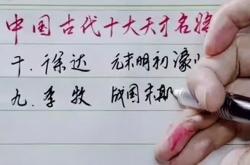 中国古代十大天才名将
十.徐达 元末明初濠
九.李牧 战国末期